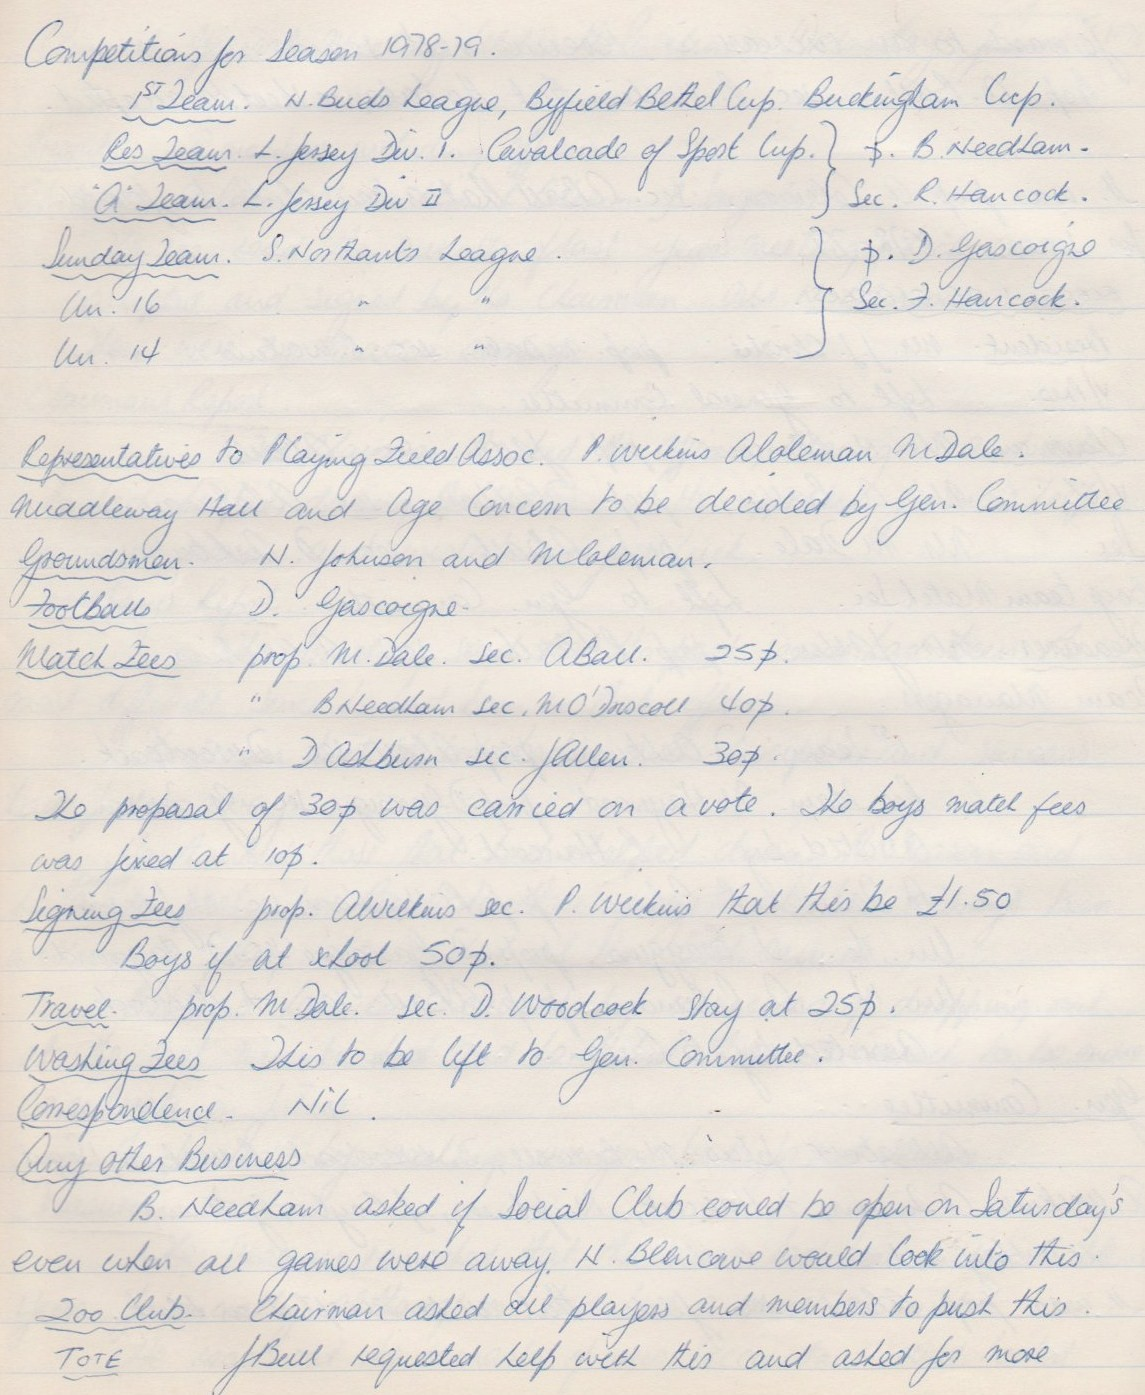 Competitions for Season 1978-79.
1ST Team. N. Bucks League, Byfield Bethel Cup. Buckingham Cup.
Res Team. L. Jersey Div. 1. Cavalcade of Sport Cup. p. B. Needham.
"A" Team. L. Jersey Div II Sec. R. Hancock.
Sunday Team. S. Northants League. p. D. Gascoigne
Un. 16 " " Sec. F. Hancock.
Un. 14 " "
Representatives to Playing Field Assoc. P. Wilkins A Coleman M Dale.
Middleway Hall and Age Concern to be decided by Gen. Committee
Groundsmen. N. Johnson and M Coleman.
Footballs D. Gascoigne
Match Fees prop. M. Dale. sec. A Ball. 25p.
" B Needham sec. M O'Driscoll 40p.
" D Ashburn sec. J Allen. 30p.
The proposal of 30p was carried on a vote. The boys match fees
was fixed at 10p.
Signing Fees prop. A Wilkins sec. P. Wilkins that this be £1.50
Boys if at school 50p.
Travel. prop. M Dale. sec. D. Woodcock stay at 25p.
Washing Fees This to be left to Gen. Committee.
Correspondence. Nil.
Any other Business
B. Needham asked if Social Club could be open on Saturday's
even when all games were away. N. Blencowe would look into this.
200 Club. Chairman asked all players and members to push this.
TOTE J Bull requested help with this and asked for more